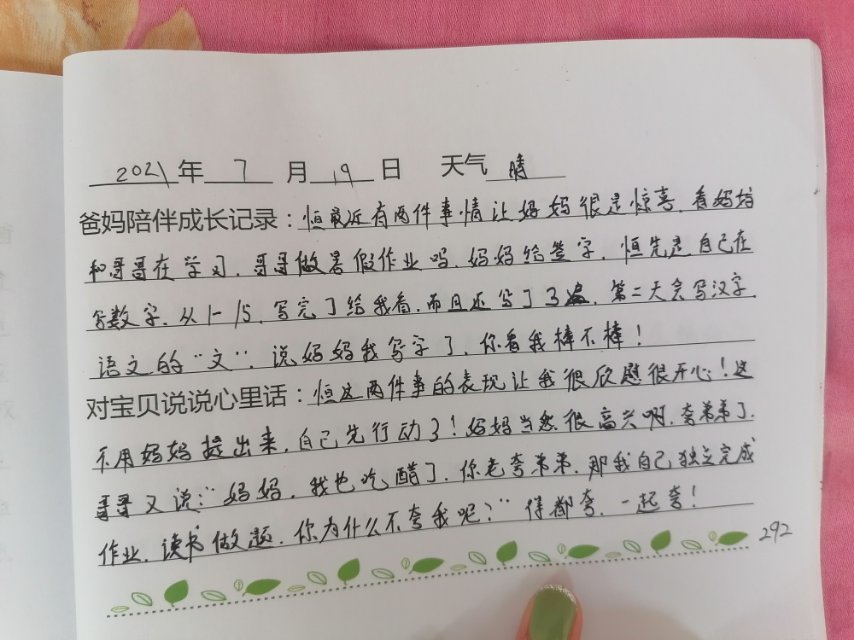 2021年 7 月 19 日 天气 晴
爸妈陪伴成长记录：恒最近有两件事情让妈妈很是惊喜.看妈妈
和哥哥在学习.哥哥做暑假作业吗.妈妈给签字.恒先是自己在
写数字.从1-15.写完了给我看.而且还写了3遍.第二天会写汉字
语文的“文”.说妈妈我写字了.你看我棒不棒!
对宝贝说说心里话：恒这两件事的表现让我很欣慰很开心!这
不用妈妈提出来.自己先行动了!妈妈当然很高兴啊.夸弟弟了.
哥哥又说:“妈妈.我也吃醋了.你老夸弟弟.那我自己独立完成
作业.读书做题.你为什么不夸我呢?”得都夸.一起夸!
292